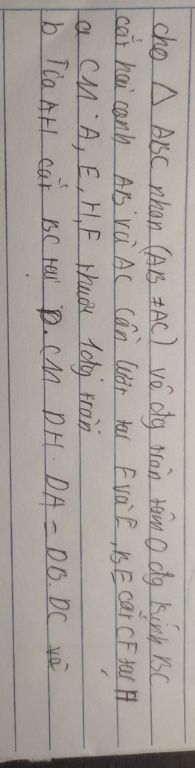 cho △ ABC nhọn (AB ≠ AC) vẽ đg tròn tâm O đg kính BC
cắt hai cạnh AB và AC lần lượt tại F và E, BE cắt CF tại H
a CM: A, E, H, F thuộc 1 đg tròn
b Tia AH cắt BC tại D. CM DH. DA = DB. DC và